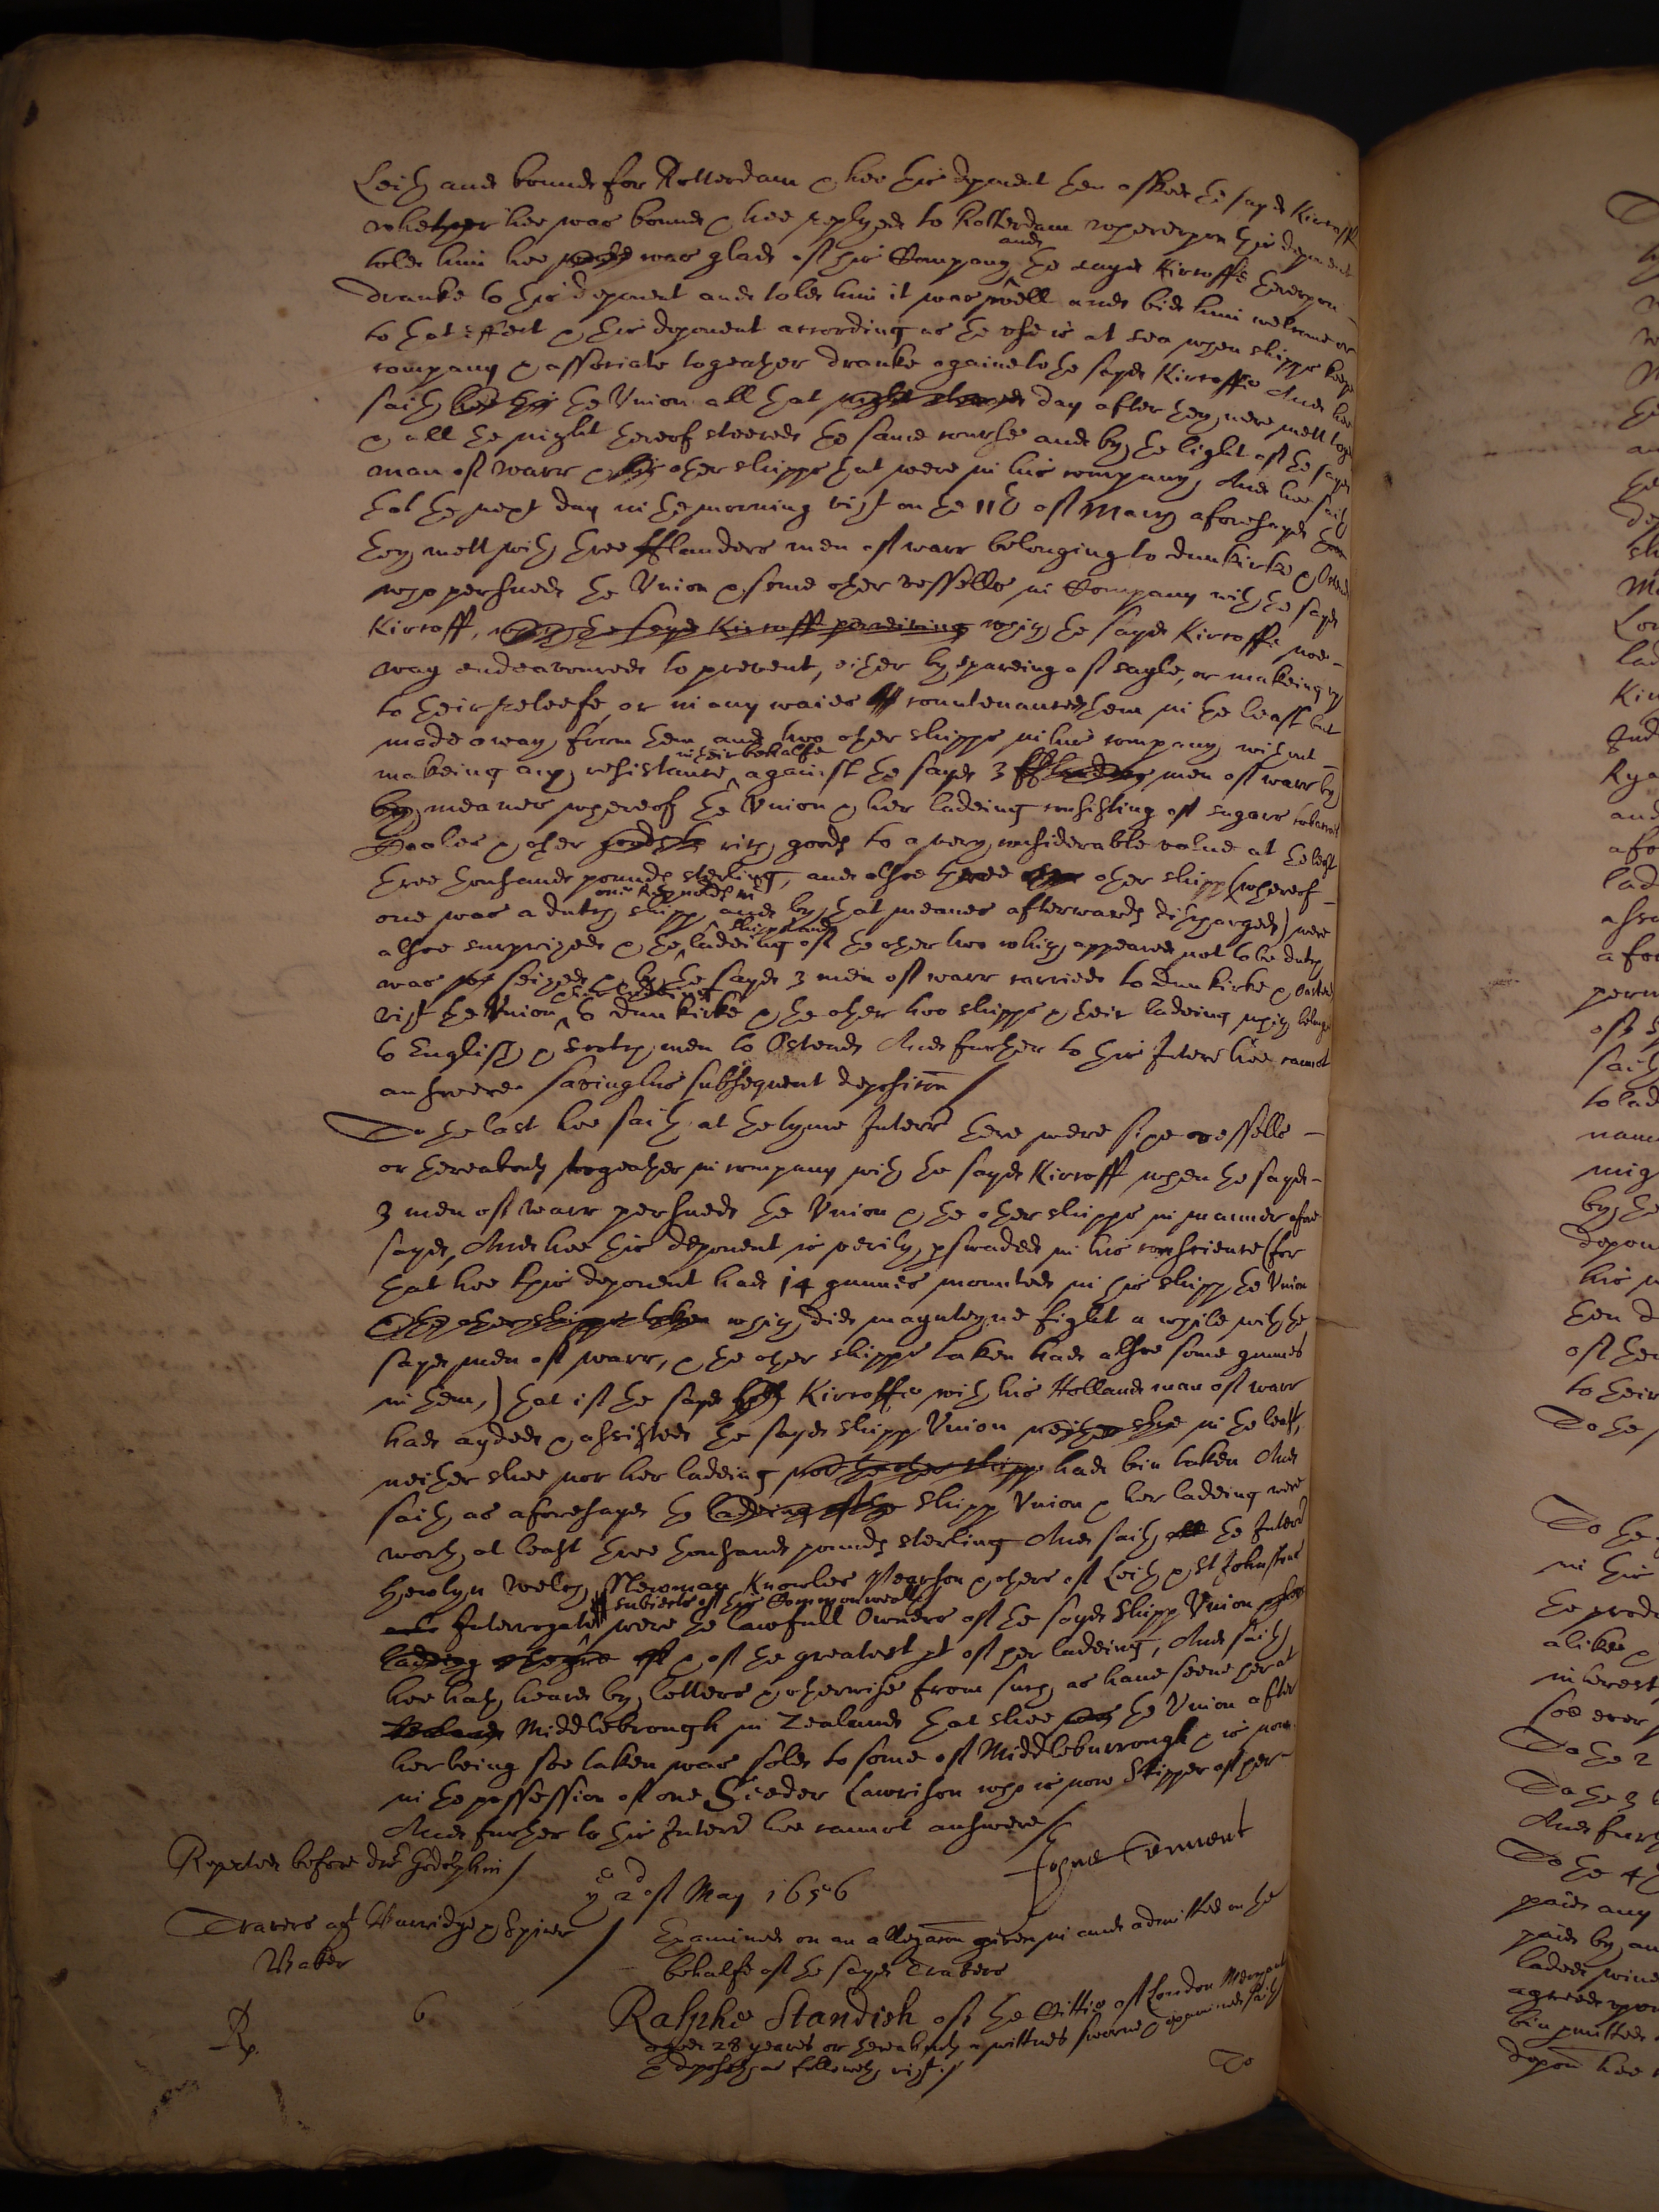 Leith and bound for Rotterdam & hee this deponent then asked the sayd Kircoffe
whether hee was bound & hee replyed to Rotterdam whereupon this deponent
told him hee was glad of his Company and the sayd Kircoffe thereupon
dranke to this deponent and told him it was well and bid him welcome or
to that effect & this deponent according as the use is at sea when shipps keepe
company & associate togeather dranke againe to the sayd Kircoffe And hee
saith the Union all that day after they were mett
& all the night thereof steered the same course and by the light of the sayd
man of warr & other shipps that were in his company, And hee saith
that the next day in the morning vizt on the 11th of March aforesayd
they mett with three fflanders men of warr belonging to dunkirke & Ostend
who pershued the Union & some other vessells in Company with the sayd
Kircoff, which the sayd Kircoff perceiving which the sayd Kircoffe noe
way endeavoured to prevent, either by spareing of sayle, or makeing up
to their releefe, or in any waies countenanced them in the least but
made away from them and two other shipps in his company without
makeing any resistance in their behalfe against the sayd 3 men of warr by
by meanes whereof the Union & her ladeing consisting of sugars tobaccoes
& other rich goods to a very considerable value at the least
three thousand pounds sterling, and alsoe three other shipps (whereof
one was a dutch shipp and by that meanes afterwards discharged) were
alsoe surprized & the shipps and ladeing of the other two which appeared not to be dutch
was seized & by the sayd 3 men of warr carried to Dunkirke & Ostend
vizt the Union & her ladeing to dunkirke & the other two shipps & their ladeing which belonged
to English & Scotch men to Ostend And further to this Interr hee cannot
answere saving his subsequent deposicon
To the last hee saith at the tyme Interr there were sixe vessells
or thereabouts togeather in company with the sayd Kircoff when the sayd
3 men of warr pershued the Union & the other shipps in manner afore
sayd, And hee this deponent is verily perswaded in his conscience (for
that hee this deponent had 14 gunnes mounted in his shipp the Union
& the other shipps taken which did maynteyne fight a while with the
sayd men of warr, & the other shipps taken had alsoe some gunnes
in them,) that if the sayd Kircoffe with his Holland man of warr
had ayded & assisted the sayd shipp Union neither shee in the least,
neither shee nor her ladeing nor the other shipps had bin taken And
saith as aforesayd the ladeing of the shipp Union & her ladeing were
worth at least three thousand pounds sterling And saith the Interr
Hewlyn Welch, Newman Knowles Pearson & others of Leith & St Johnstons
Interrogate subiects of this Commonwealth were the lawfull Owners of the sayd Shipp Union
ladeing & of the greatest pt of her ladeing, And saith
hee hath heard by letters & otherwise from such as have seene her at
Middlebrough in Zealand that shee the Union after
her being soe taken was sold to some of Middleburrough & is now
in the possession of one Sieder Lawrison who is now Skipper of her
And further to this Interr hee cannot answere
Repeated before dr Godolphin
ye 2d of May 1656
Travers agt Burridge & Spicer
Examined on an allegacon given in and admitted on the
Baker
behalfe of the sayd Travers
Rp.
6
Ralphe Standish of the Cittie of London Merchant
aged 28 yeares or thereabouts a wittnes sworne & examined saith
& deposeth as followeth vizt
To